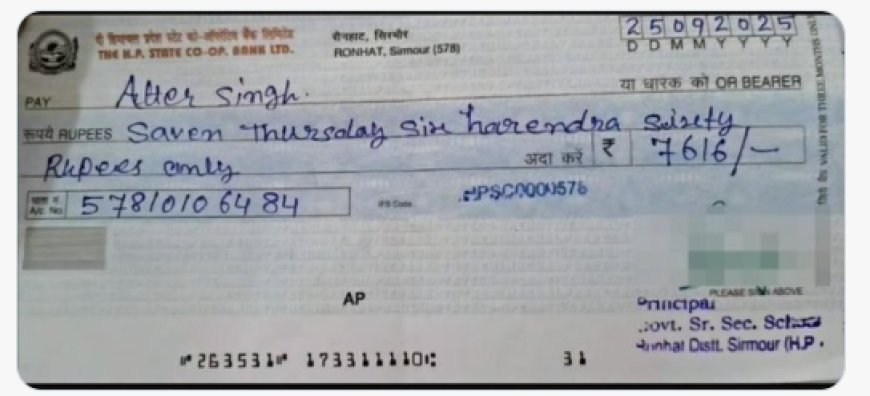 दी हिमाचल प्रदेश स्टेट को-ऑपरेटिव बैंक लिमिटेड
THE H.P. STATE CO-OP. BANK LTD.
रोनहाट, सिरमौर
RONHAT, Sirmour (578)
25092025
D D M M Y Y Y Y
PAY Atter Singh.
या धारक को OR BEARER
रूपये RUPEES Saven Thursday Six harendra Sixty
Rupees only
अदा करें ₹ 7616/-
A/c No. 57810106484
IFS Code HPSC0000578
VALID FOR THREE MONTHS ONLY
AP
PLEASE SIGN ABOVE
Principal
Govt. Sr. Sec. School
Ronhat Distt. Sirmour (H.P.
⑈263531⑈ 173311110⑆ 31